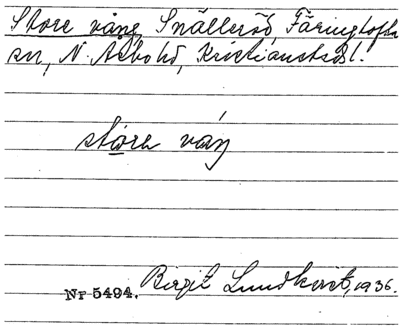 Store vång Snälleröd, Färingtofta
sn, N. Åsbo hd, Kristianstads l.
store våŋ
Nr 5494. Birgit Lundkvist, 1936.